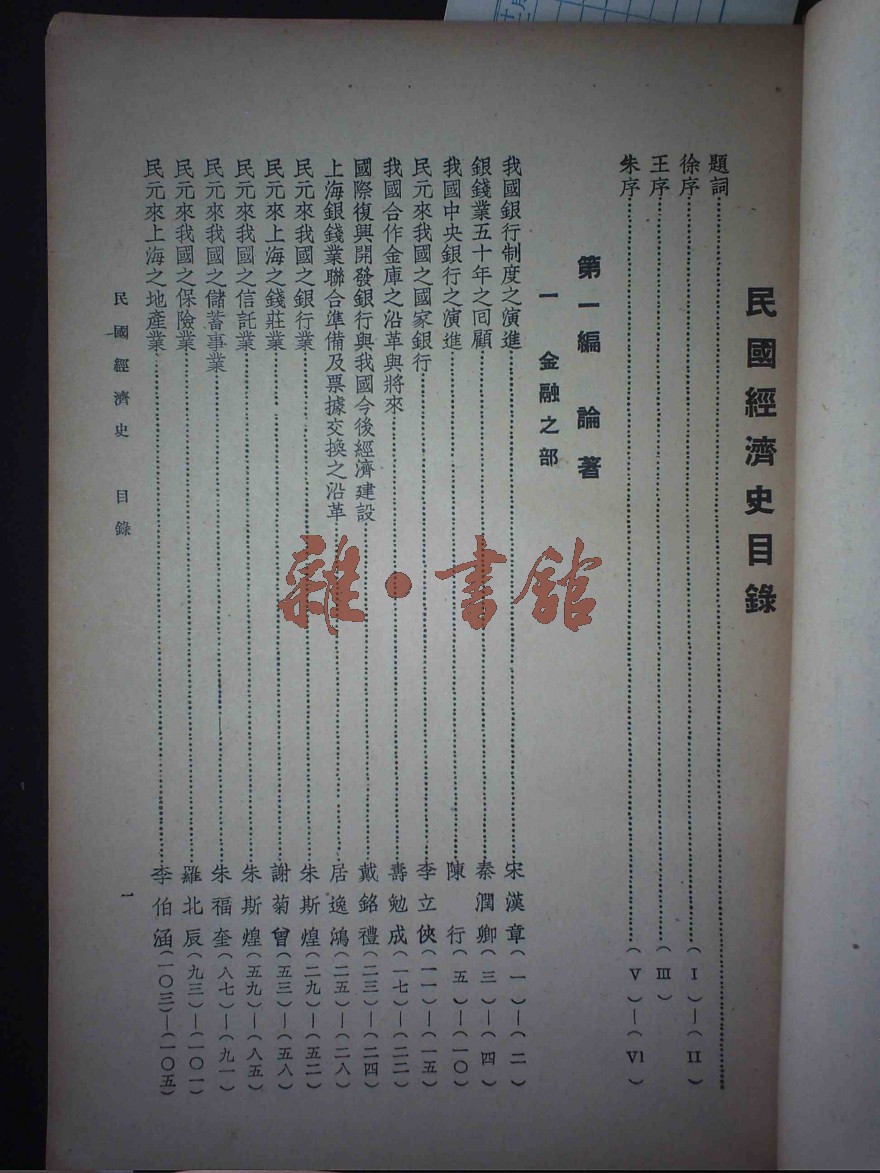 民國經濟史目錄
題詞
徐序（I）—（II）
王序（III）
朱序（V）—（VI）
第一編 論著
一 金融之部
我國銀行制度之演進 宋漢章（一）—（二）
銀錢業五十年之回顧 秦潤卿（三）—（四）
我國中央銀行之演進 陳行（五）—（一〇）
民元來我國之國家銀行 李立俠（一一）—（一五）
我國合作金庫之沿革與將來 壽勉成（一七）—（二二）
國際復興開發銀行與我國今後經濟建設 戴銘禮（二三）—（二四）
上海銀錢業聯合準備及票據交換之沿革 居逸鴻（二五）—（二八）
民元來我國之銀行業 朱斯煌（二九）—（五二）
民元來上海之錢莊業 謝菊曾（五三）—（五八）
民元來我國之信託業 朱斯煌（五九）—（八五）
民元來我國之儲蓄事業 朱福奎（八七）—（九一）
民元來我國之保險業 羅北辰（九三）—（一〇一）
民元來上海之地產業 李伯涵（一〇三）—（一〇五）
民國經濟史 目錄
一
雜·書館